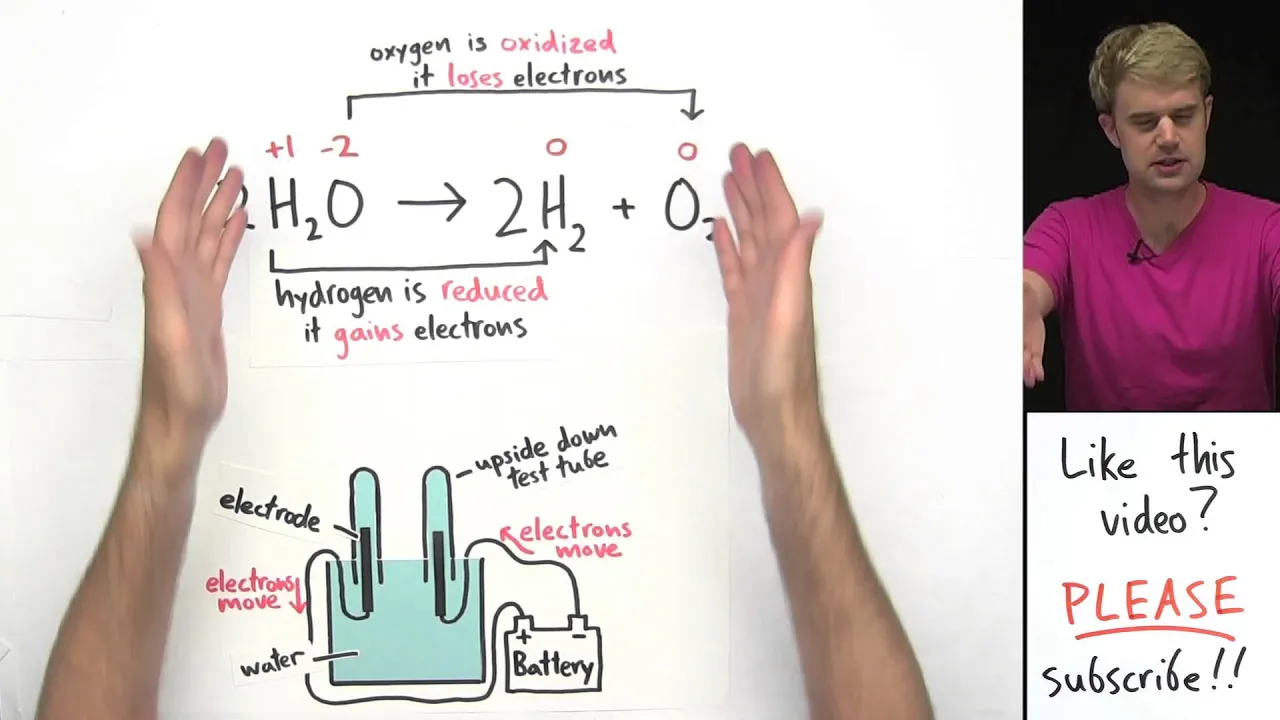 oxygen is oxidized
it loses electrons
+1 -2 0 0
2 H₂O → 2H₂ + O₂
hydrogen is reduced
it gains electrons
upside down
test tube
electrode
electrons
move
electrons
move
water
+ -
Battery
Like this
video?
PLEASE
subscribe!!